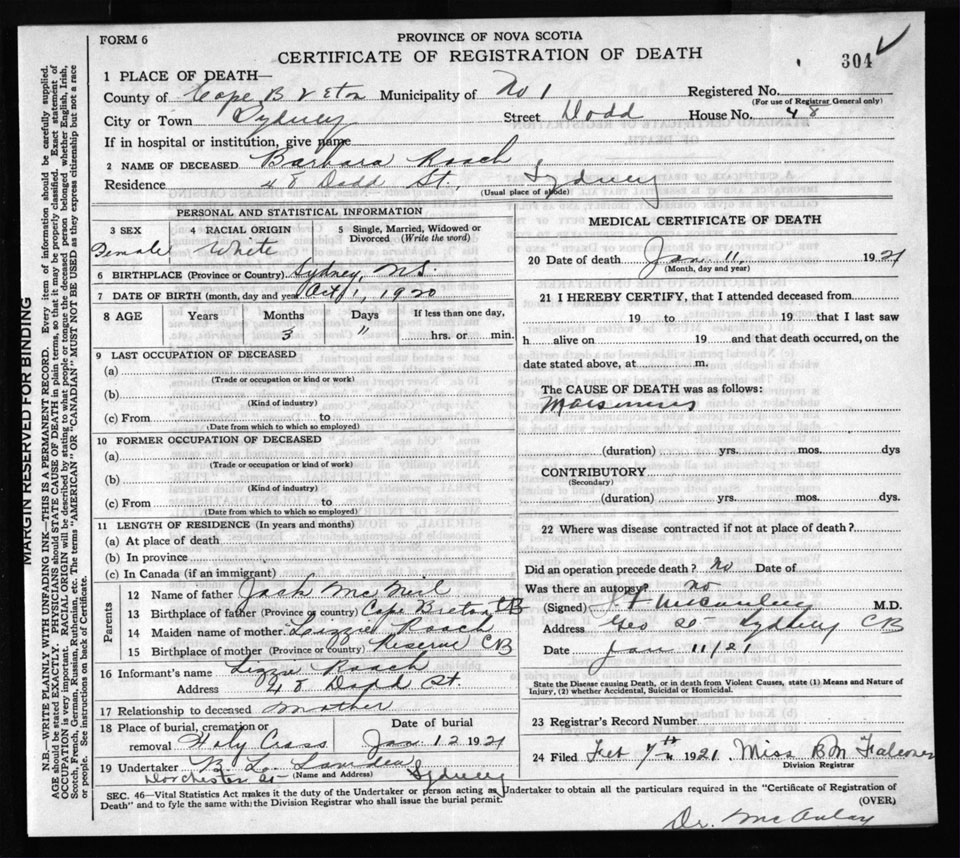 FORM 6
PROVINCE OF NOVA SCOTIA
CERTIFICATE OF REGISTRATION OF DEATH
304
1 PLACE OF DEATH—
County of Cape Breton Municipality of No 1 Registered No.
(For use of Registrar General only)
City or Town Sydney Street Dodd House No. 48
If in hospital or institution, give name
2 NAME OF DECEASED Barbara Roach
Residence 48 Dodd St., Sydney
(Usual place of abode)
PERSONAL AND STATISTICAL INFORMATION
3 SEX 4 RACIAL ORIGIN 5 Single, Married, Widowed or Divorced (Write the word)
Female White
6 BIRTHPLACE (Province or Country) Sydney, N.S.
7 DATE OF BIRTH (month, day and year) Oct 1, 1920
8 AGE Years Months Days If less than one day,
3 " hrs. or min.
9 LAST OCCUPATION OF DECEASED
(a)
(Trade or occupation or kind or work)
(b)
(Kind of industry)
(c) From to
(Date from which to which so employed)
10 FORMER OCCUPATION OF DECEASED
(a)
(Trade or occupation or kind of work)
(b)
(Kind of industry)
(c) From to
(Date from which to which so employed)
11 LENGTH OF RESIDENCE (In years and months)
(a) At place of death
(b) In province
(c) In Canada (if an immigrant)
Parents
12 Name of father Jash McNeil
13 Birthplace of father (Province or country) Cape Breton CB
14 Maiden name of mother Lizzie Roach
15 Birthplace of mother (Province or country) Reserve CB
16 Informant's name Lizzie Roach
Address 48 Dodd St.
17 Relationship to deceased Mother
18 Place of burial, cremation or removal Holy Cross Date of burial Jan 12 1921
19 Undertaker B. L.
(Name and Address)
Dorchester St Sydney
MEDICAL CERTIFICATE OF DEATH
20 Date of death Jan 11, 1921
(Month, day and year)
21 I HEREBY CERTIFY, that I attended deceased from
19 to 19 that I last saw
h alive on 19 and that death occurred, on the
date stated above, at m.
The CAUSE OF DEATH was as follows:
(duration) yrs. mos. dys
CONTRIBUTORY
(Secondary)
(duration) yrs. mos. dys.
22 Where was disease contracted if not at place of death?
Did an operation precede death? no Date of
Was there an autopsy? no
(Signed) M.D.
Address Geo St Sydney CB
Date Jan 11/21
State the Disease causing Death, or in death from Violent Causes, state (1) Means and Nature of
Injury, (2) whether Accidental, Suicidal or Homicidal.
23 Registrar's Record Number
24 Filed Feb 7th 1921. Miss B M Falconer
Division Registrar
SEC. 46—Vital Statistics Act makes it the duty of the Undertaker or person acting as Undertaker to obtain all the particulars required in the "Certificate of Registration of
Death" and to fyle the same with the Division Registrar who shall issue the burial permit.
(OVER)
Dr. McAulay
MARGIN RESERVED FOR BINDING
N.B.—WRITE PLAINLY WITH UNFADING INK. THIS IS A PERMANENT RECORD. Every item of information should be carefully supplied.
AGE should be stated EXACTLY. PHYSICIANS should STATE CAUSE OF DEATH in plain terms, so that it may be properly classified. Exact statement of
OCCUPATION is very important. RACIAL ORIGIN will be described by stating to what people or tongue the deceased person belonged whether English, Irish,
Scotch, French, German, Russian, Ruthenian, etc. The terms "AMERICAN" or "CANADIAN" MUST NOT BE USED as they express citizenship but not a race
or people. See instructions on back of Certificate.